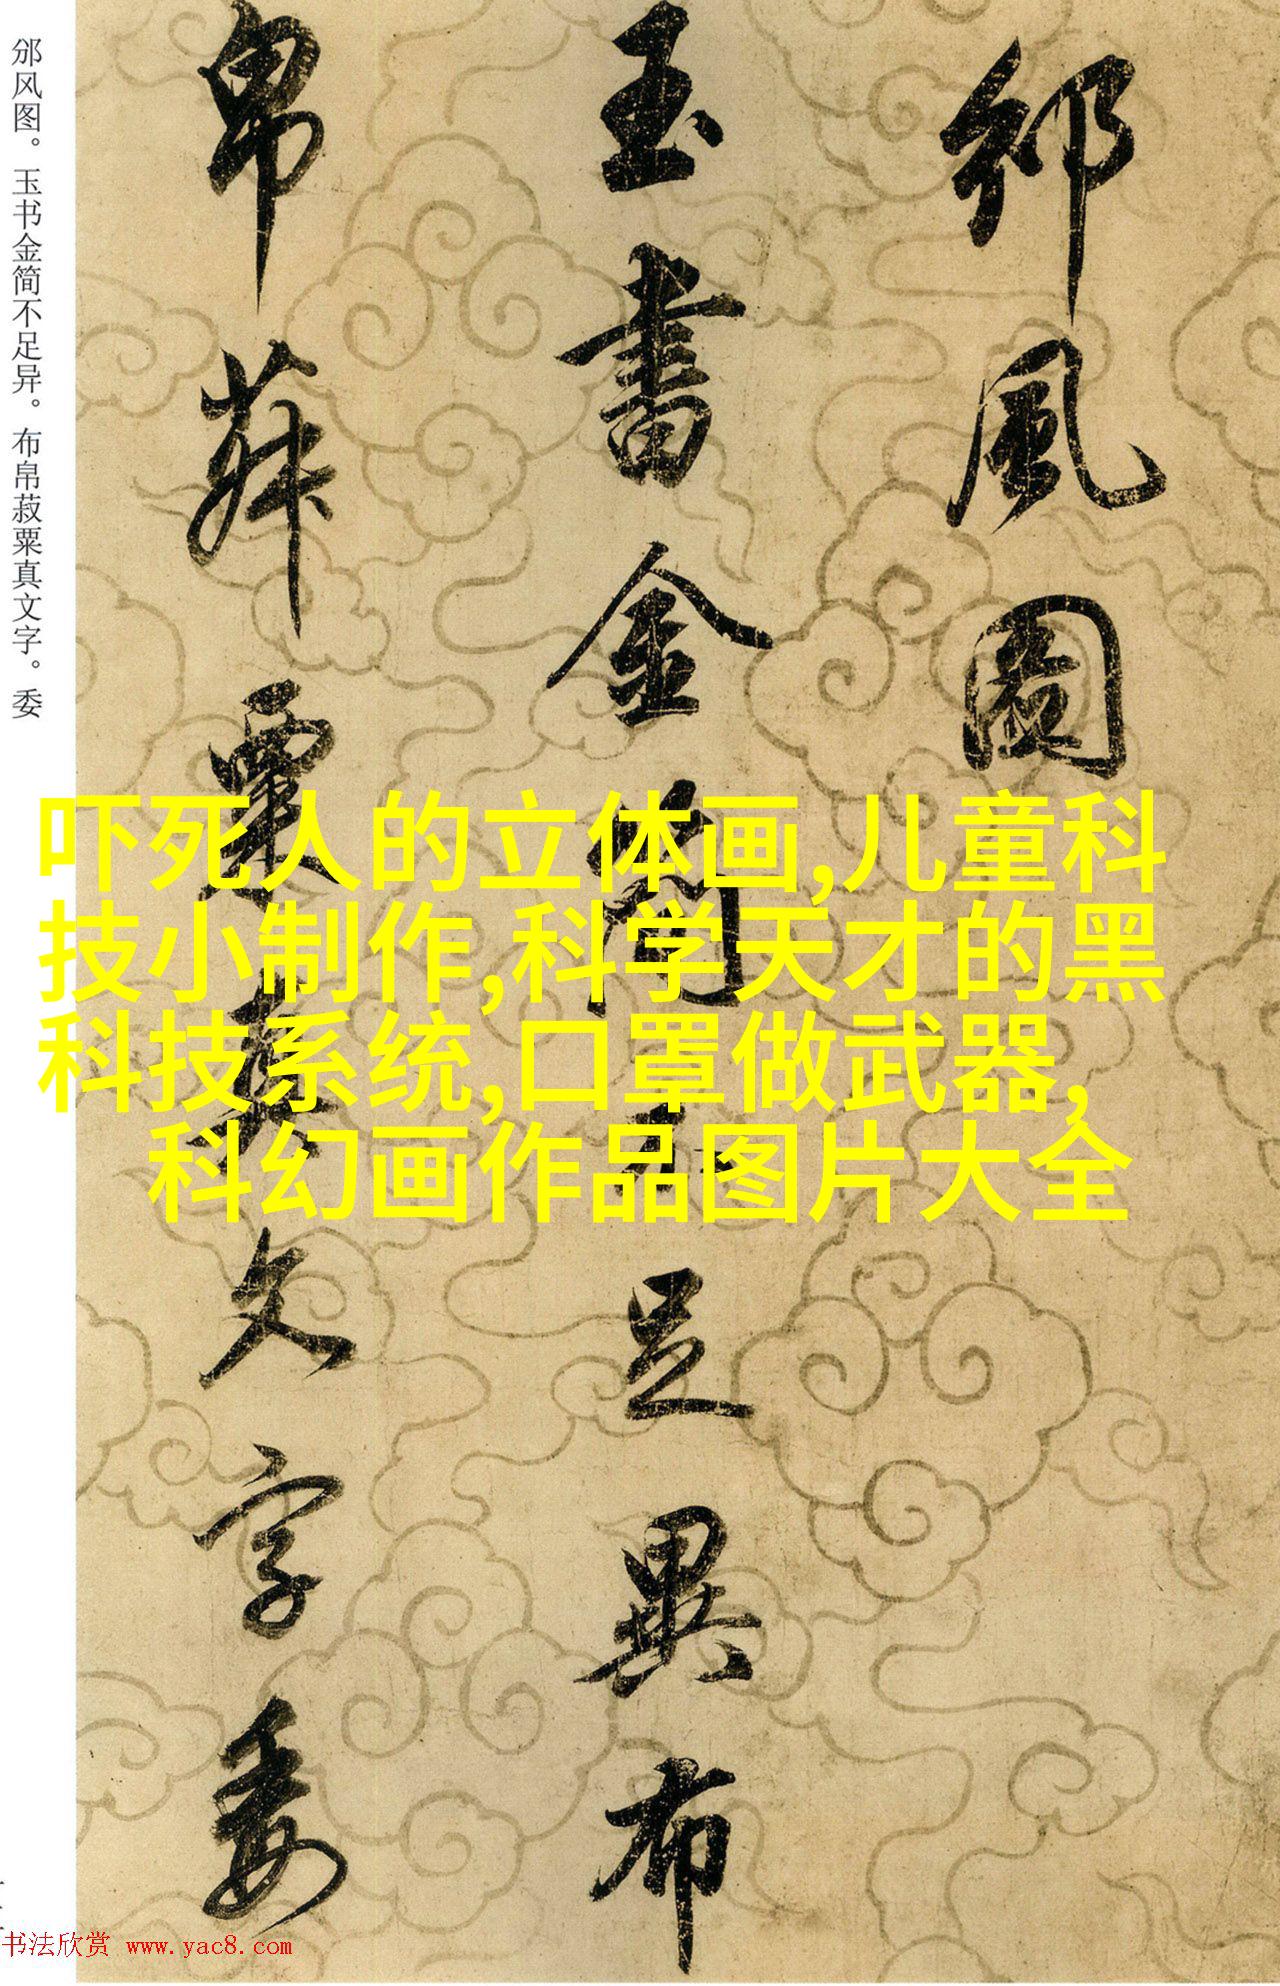 邠風圖
玉書金簡不足異布
帛菽粟真文字委
邠风图。玉书金简不足异。布帛菽粟真文字。委
吓死人的立体画,儿童科
技小制作,科学天才的黑
科技系统,口罩做武器,
科幻画作品图片大全
书法欣赏 www.yac8.com